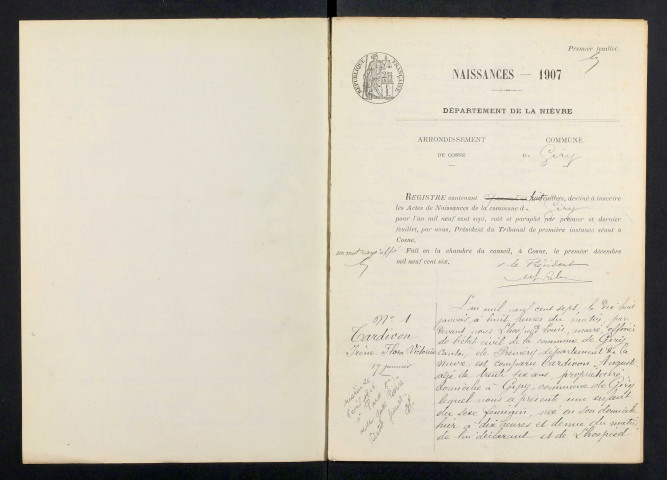 Premier feuillet.
RÉPUBLIQUE FRANÇAISE
NAISSANCES — 1907
DÉPARTEMENT DE LA NIÈVRE
ARRONDISSEMENT
DE COSNE
COMMUNE
DE Giry
REGISTRE contenant huit feuillets, destiné à inscrire
les Actes de Naissances de la commune d Giry
pour l'an mil neuf cent sept, coté et paraphé par premier et dernier
feuillet, par nous, Président du Tribunal de première instance séant à
Cosne.
un mot rayé
Fait en la chambre du conseil, à Cosne, le premier décembre
mil neuf cent six.
Le Président
N° 1
Tardivon
Irène Flora Victorine
17 janvier
L'an mil neuf cent sept, le dix huit
janvier à huit heures du matin, par
devant nous Lhospied Louis, maire officier
de l'état civil de la commune de Giry
Canton de Prémery département de la
Nièvre, est comparu Tardivon August
âgé de trente six ans propriétaire
domicilié à Giry, commune de Giry
lequel nous a présenté une enfant
du sexe féminin, née en son domicile
hier à dix heures et demie du matin,
de lui déclarant et de Lhospied